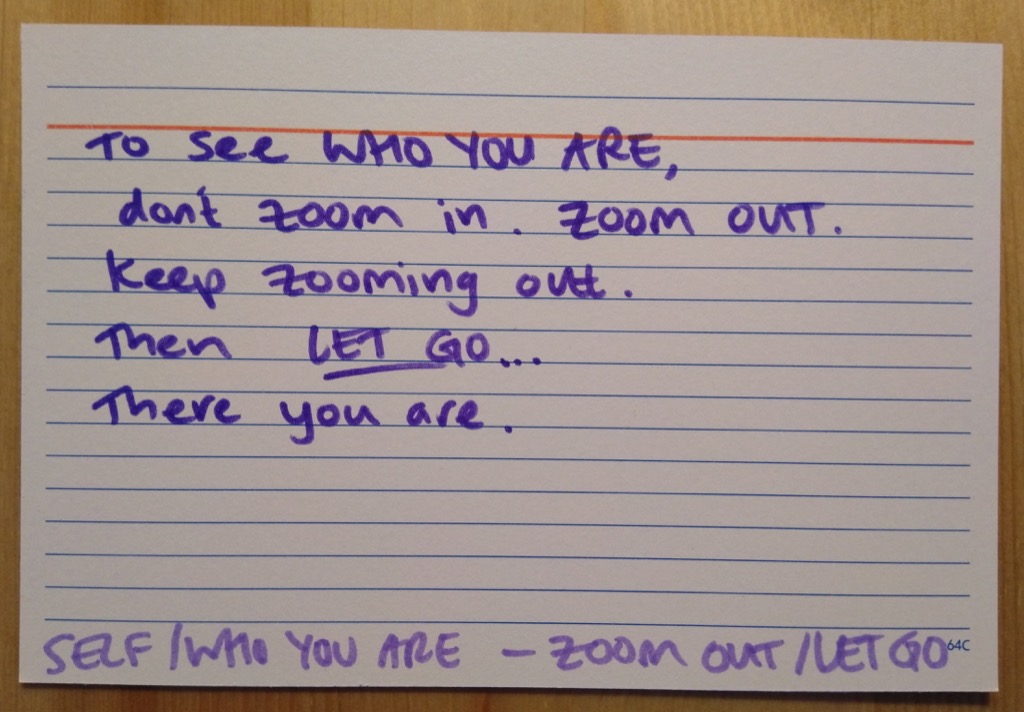 To see WHO YOU ARE,
don't zoom in. ZOOM OUT.
Keep zooming out.
Then LET GO...
There you are.
SELF/WHO YOU ARE - ZOOM OUT/LET GO
64C